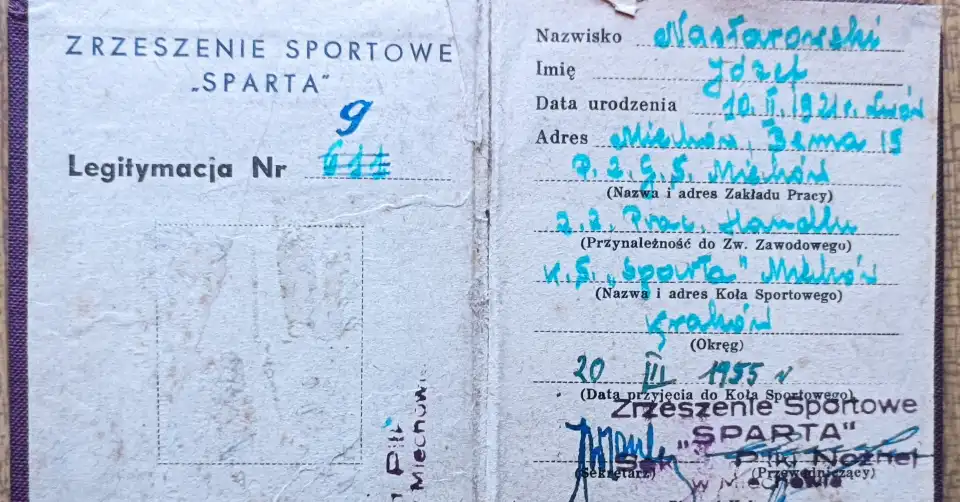 ZRZESZENIE SPORTOWE
„SPARTA"
9
Legitymacja Nr 611
Nazwisko Nastarowski
Imię Józef
Data urodzenia 10. II. 1921 r. Lwów
Adres Miechów, Bema 15
P. Z. G. S. Miechów
(Nazwa i adres Zakładu Pracy)
Z. Z. Prac. Handlu
(Przynależność do Zw. Zawodowego)
K. S. „Sparta" Miechów
(Nazwa i adres Koła Sportowego)
Kraków
(Okręg)
20 III 1955 r
(Data przyjęcia do Koła Sportowego)
Zrzeszenie Sportowe
„SPARTA"
Piłki Nożnej
(Sekretarz) (Przewodniczący)
w Miechowie